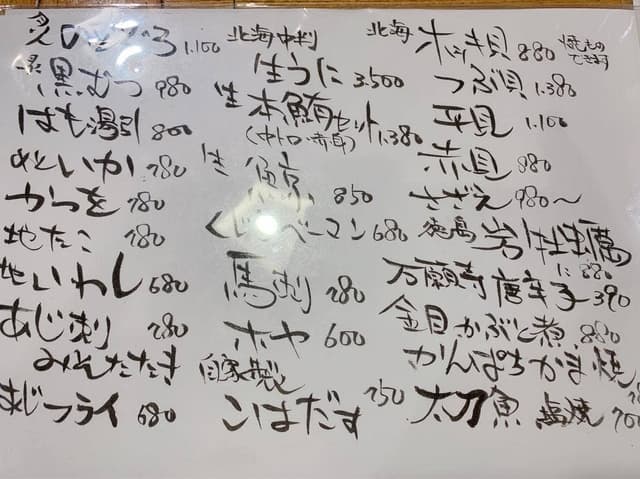 炙 のどぐろ 1.100
黒むつ 980
はも湯引 800
いか 780
かつを 780
地たこ 780
地いわし 680
あじ刺 780
みそたたき
あじフライ 680
北海中判
生うに 3.500
生本鮪セット
(中トロ・赤身) 1.380
生鯨 850
くじらベーコン 680
馬刺 780
ホヤ 600
自家製
こはだす 750
北海 ホッキ貝 880 焼もの
できます
つぶ貝 1.380
平貝 1.100
赤貝 980
さざえ 980〜
徳島 岩牡蠣
880
万願寺唐辛子 390
金目かぶと煮 880
かんぱちかま焼
太刀魚 塩焼